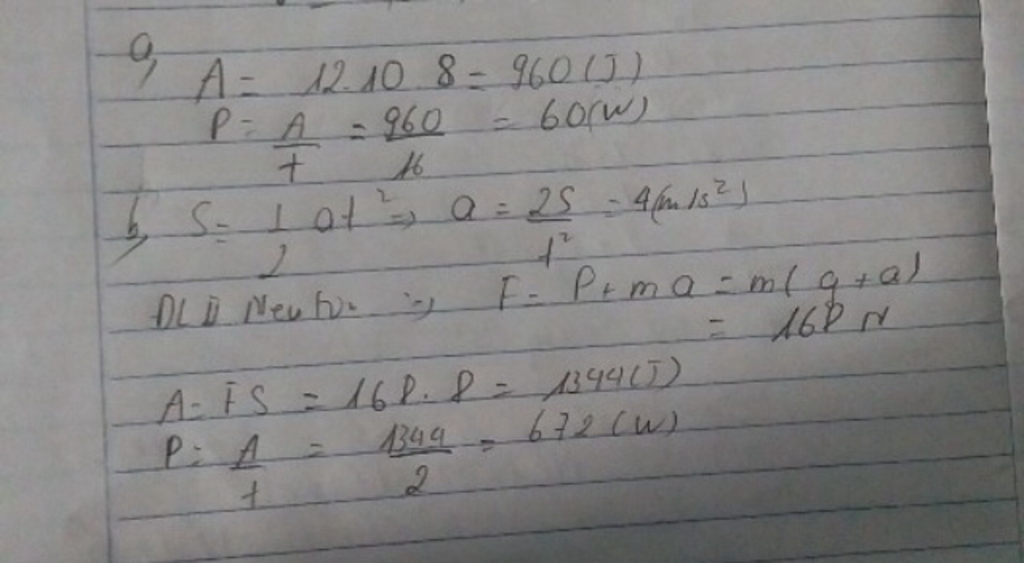 a,
A = 12.10 8 = 960 (J)
P = A/t = 960/16 = 60 (W)
b, S = 1/2 at² => a = 2S/t² = 4 (m/s²)
ĐL II Newton => F = P + ma = m(g+a)
= 168 N
A = FS = 168.8 = 1344 (J)
P = A/t = 1344/2 = 672 (W)